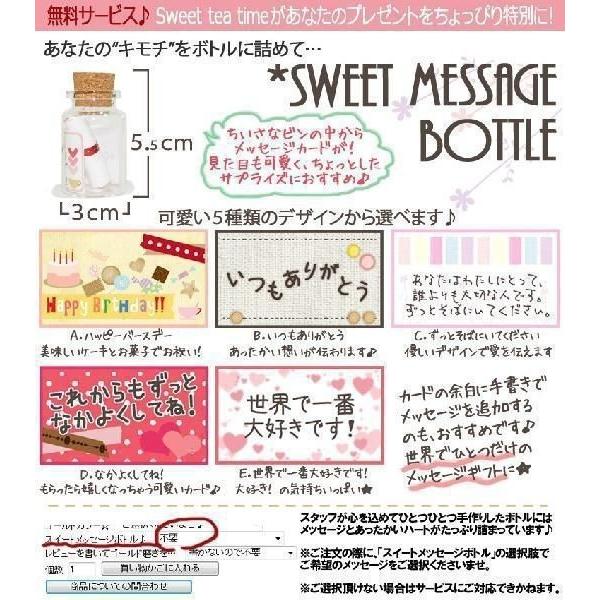 無料サービス♪ Sweet tea timeがあなたのプレゼントをちょっぴり特別に!
あなたの"キモチ"をボトルに詰めて…
*SWEET MESSAGE
BOTTLE
5.5cm
3cm
ちいさなビンの中から
メッセージカードが!
見た目も可愛く、ちょっとした
サプライズにおすすめ♪
可愛い5種類のデザインから選べます♪
Happy Birthday!!
A.ハッピーバースデー
美味しいケーキとお菓子でお祝い!
いつもありがとう
B.いつもありがとう
あったかい想いが伝わります♪
あなたはわたしにとって、
誰よりも大切な人です。
ずっとそばにいてください。
C.ずっとそばにいてください
優しいデザインで愛を伝えます
これからもずっと
なかよくしてね!
D.なかよくしてね!
もらったら嬉しくなっちゃう可愛いカード♪
世界で一番
大好きです!
E.世界で一番大好きです!
大好き!の気持ちいっぱい★
カードの余白に手書きで
メッセージを追加する
のも、おすすめです!
世界でひとつだけの
メッセージギフトに★
スイートメッセージボトル 不要
レビューを書いてゴールド磨きを
個数 1 買い物かごに入れる
商品についての問合わせ
スタッフが心を込めてひとつひとつ手作りしたボトルには
メッセージとあったかいハートがたっぷり詰まっています♪
※ご注文の際に、「スイートメッセージボトル」の選択肢で
ご希望のメッセージをご選択くださいませ。
※ご選択頂けない場合はサービスにご対応できかねます。